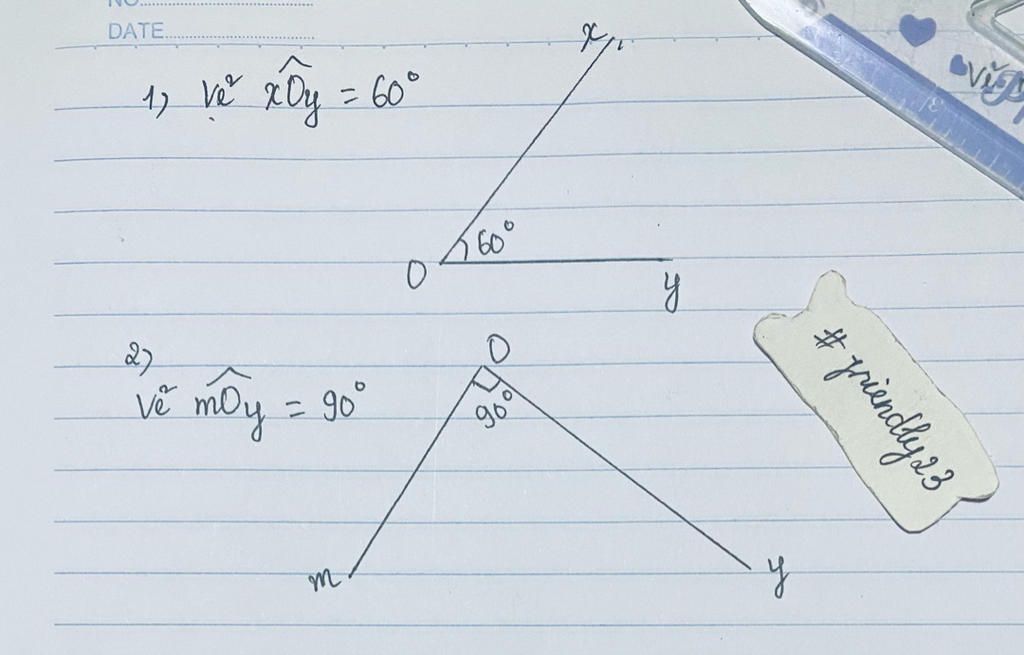 NO.
DATE
x
1) Vẽ xOy = 60°
60°
O
y
2)
O
Vẽ mOy = 90°
90°
m
y
# friendly23